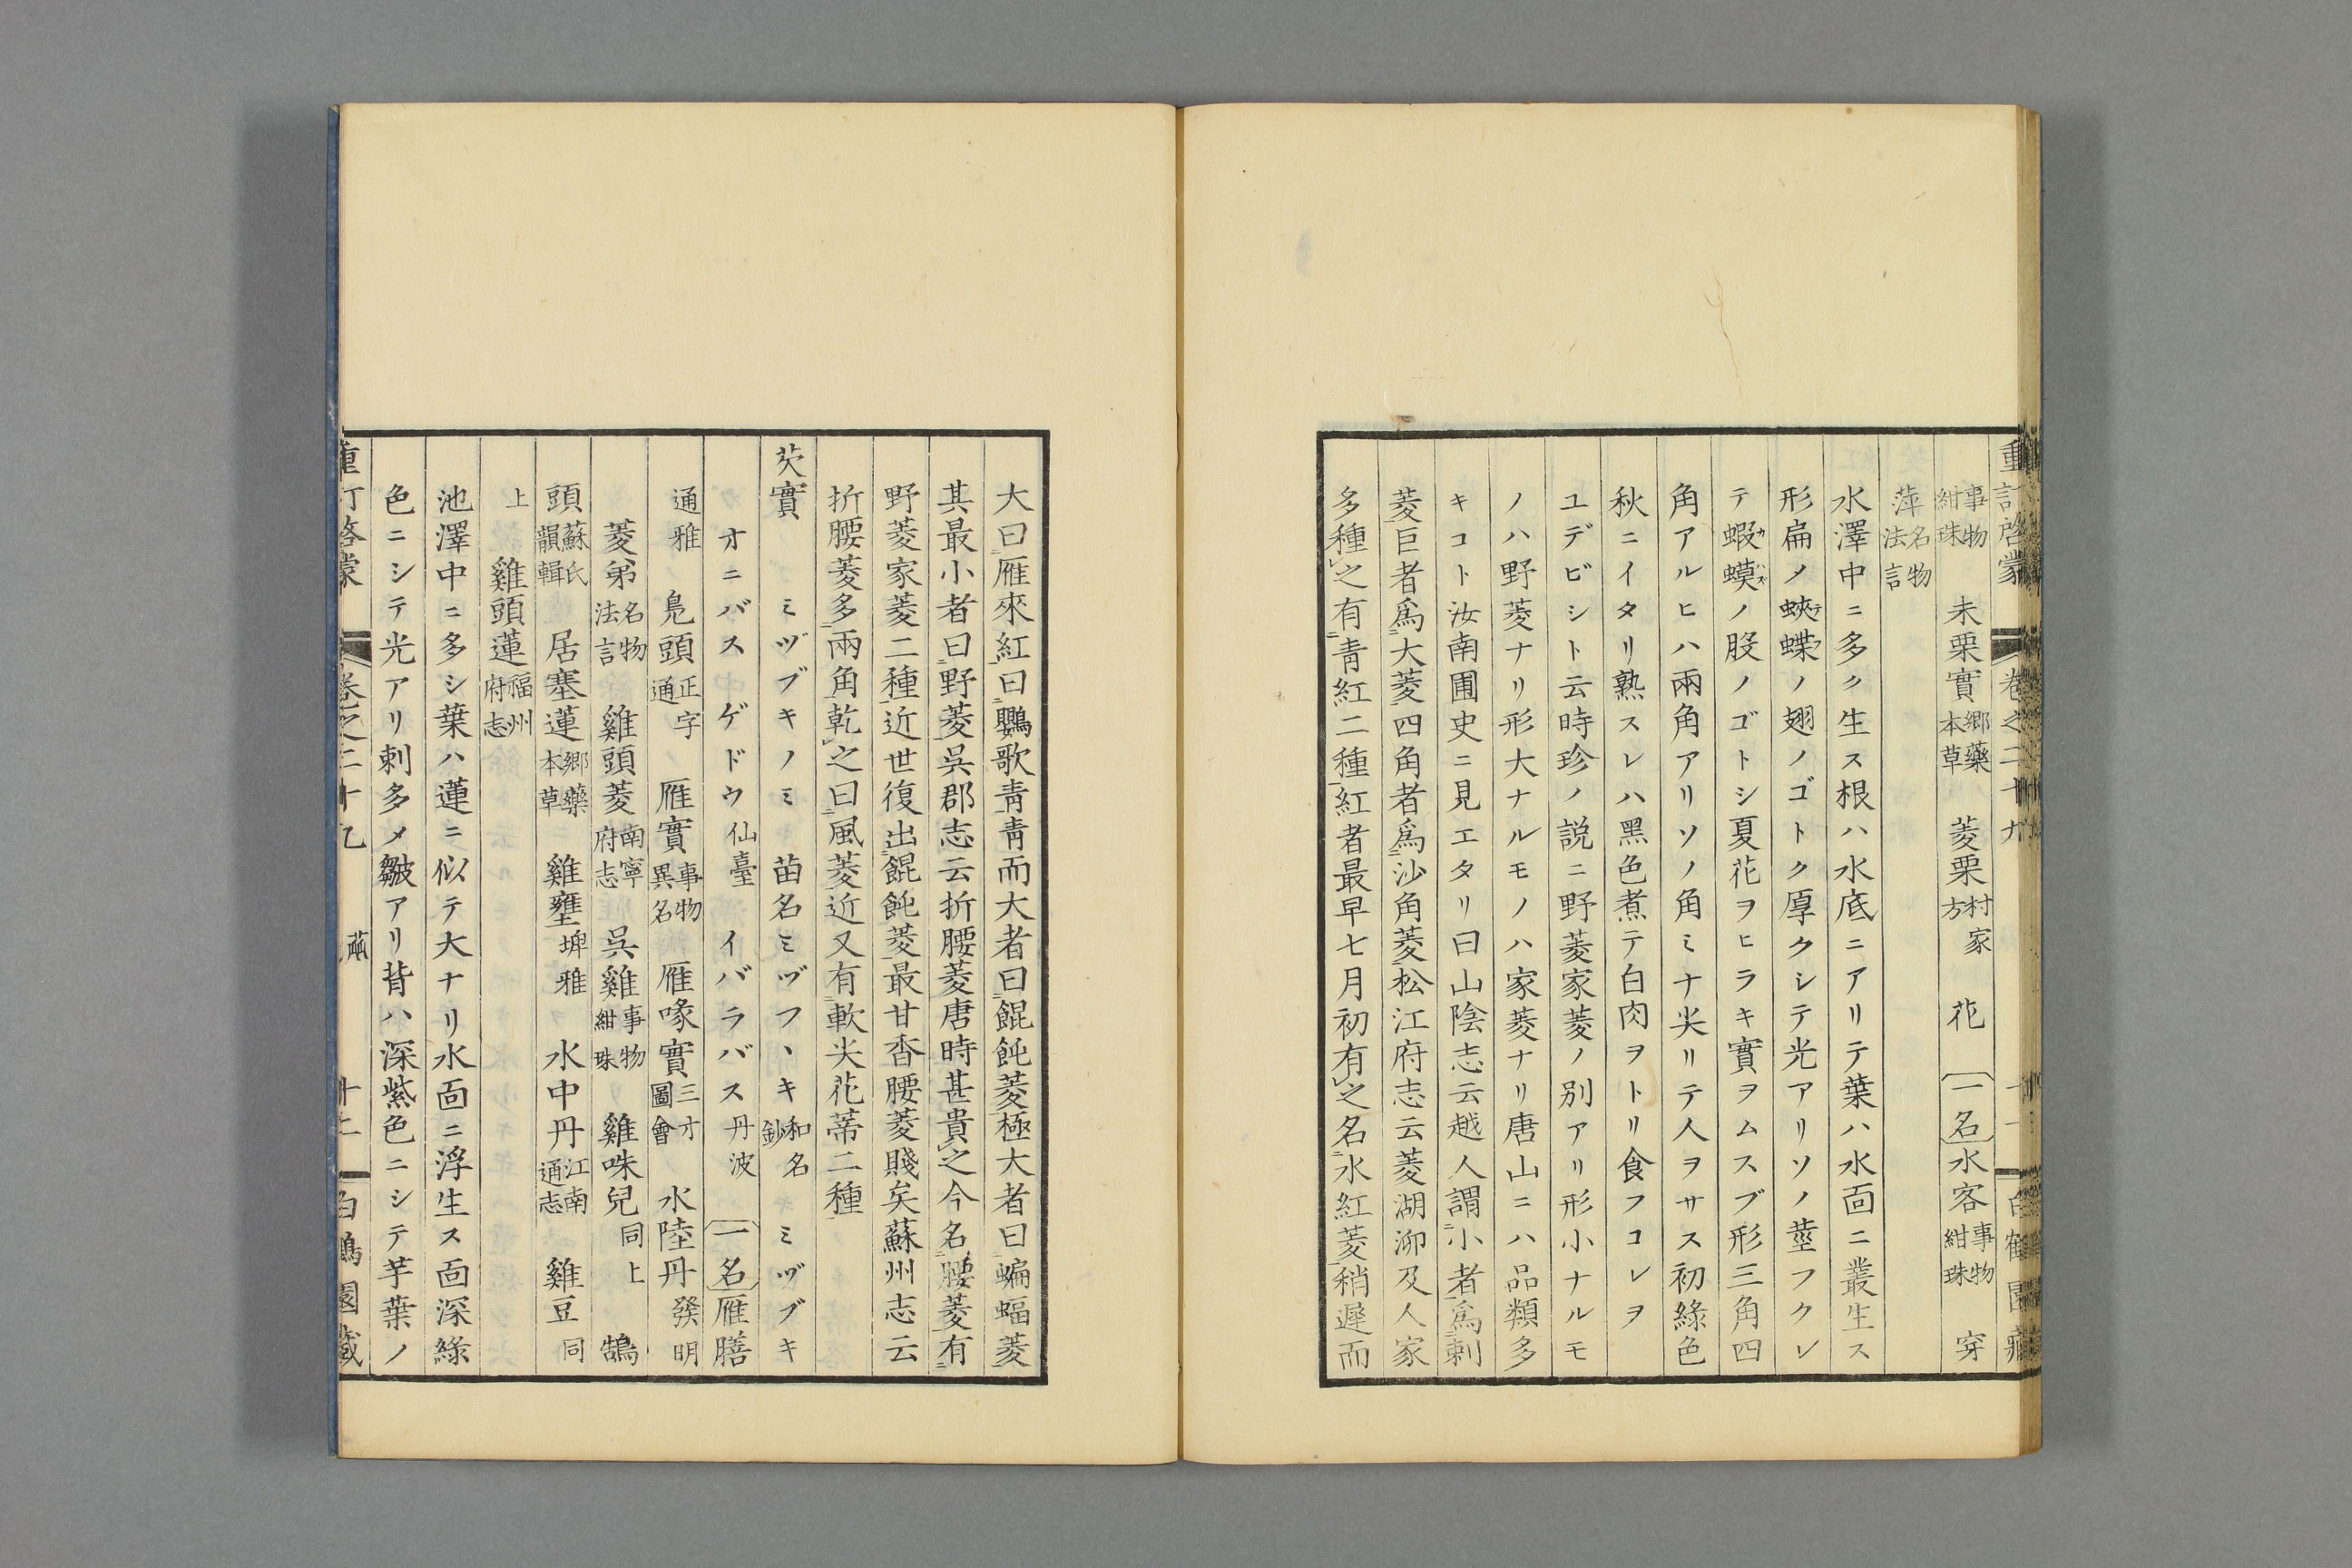 重訂啓蒙 卷之二十九 十一 白鶴園藏
事物紺珠 未栗實 郷藥本草 菱栗 村家方 花 一名 水客 事物紺珠 穿
萍 名物法言
水澤中ニ多ク生ス根ハ水底ニアリテ葉ハ水面ニ叢生ス
形扁ノ蛺蝶ノ翅ノゴトク厚クシテ光アリソノ莖フクレ
テ蝦蟆ノ股ノゴトシ夏花ヲヒラキ實ヲムスブ形三角四
角アルヒハ兩角アリソノ角ミナ尖リテ人ヲサス初綠色
秋ニイタリ熟スレハ黑色煮テ白肉ヲトリ食フコレヲ
ユデビシト云時珍ノ説ニ野菱家菱ノ別アリ形小ナルモ
ノハ野菱ナリ形大ナルモノハ家菱ナリ唐山ニハ品類多
キコト汝南圃史ニ見エタリ曰山陰志云越人謂小者爲刺
菱巨者爲大菱四角者爲沙角菱松江府志云菱湖泖及人家
多種之有青紅二種紅者最早七月初有之名水紅菱稍遲而
大曰雁來紅曰鸚歌青青而大者曰餛飩菱極大者曰蝙蝠菱
其最小者曰野菱吳郡志云折腰菱唐時甚貴之今名腰菱有
野菱家菱二種近世復出餛飩菱最甘香腰菱賤矣蘇州志云
折腰菱多兩角乾之曰風菱近又有軟尖花蒂二種
芡實 ミヅブキノミ 苗名ミヅフヽキ 和名鈔 ミヅブキ
オニバス ゲドウ 仙臺 イバラバス 丹波 一名 雁膳
通雅 鳧頭 正字通 雁實 事物異名 雁喙實 三才圖會 水陸丹 發明
菱弟 名物法言 雞頭菱 南寧府志 吳雞 事物紺珠 雞咮兒 同上 鵠
頭 蘇氏韻輯 居塞蓮 郷藥本草 雞壅 埤雅 水中丹 江南通志 雞豆 同
上 雞頭蓮 福州府志
池澤中ニ多シ葉ハ蓮ニ似テ大ナリ水面ニ浮生ス面深綠
色ニシテ光アリ刺多メ皺アリ背ハ深紫色ニシテ芋葉ノ
重訂啓蒙 卷之二十九 十二 白鶴園藏